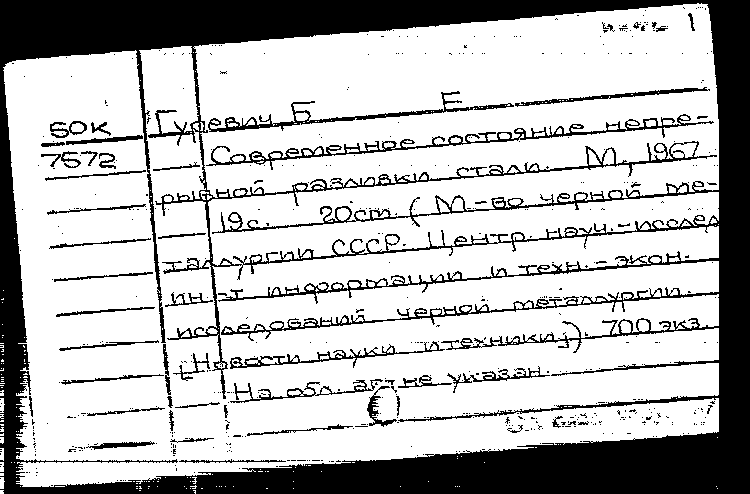 1
БОК Гуревич, Б Е
7572 Современное состояние непре-
рывной разливки стали. М., 1967
19с. 20см. (М-во черной ме-
таллургии СССР. Центр. науч.-исслед
ин-т информации и техн.-экон.
исследований черной металлургии.
[Новости науки и техники]). 700 экз.
На обл. авт не указан.